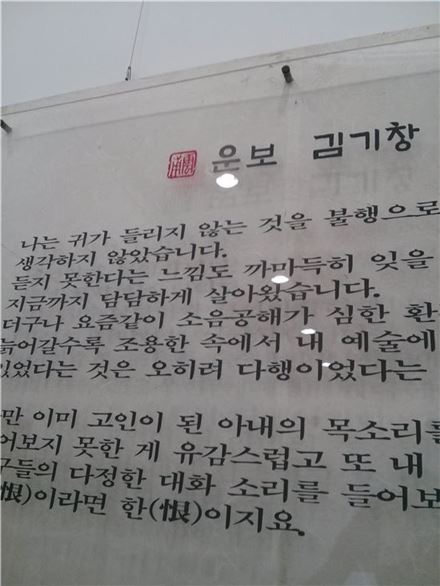 운보 김기창
나는 귀가 들리지 않는 것을 불행으로
생각하지 않았습니다.
듣지 못한다는 느낌도 까마득히 잊을
지금까지 담담하게 살아왔습니다.
더구나 요즘같이 소음공해가 심한 환
늙어갈수록 조용한 속에서 내 예술에
있었다는 것은 오히려 다행이었다는
만 이미 고인이 된 아내의 목소리를
어보지 못한 게 유감스럽고 또 내
구들의 다정한 대화 소리를 들어보
(恨)이라면 한(恨)이지요.